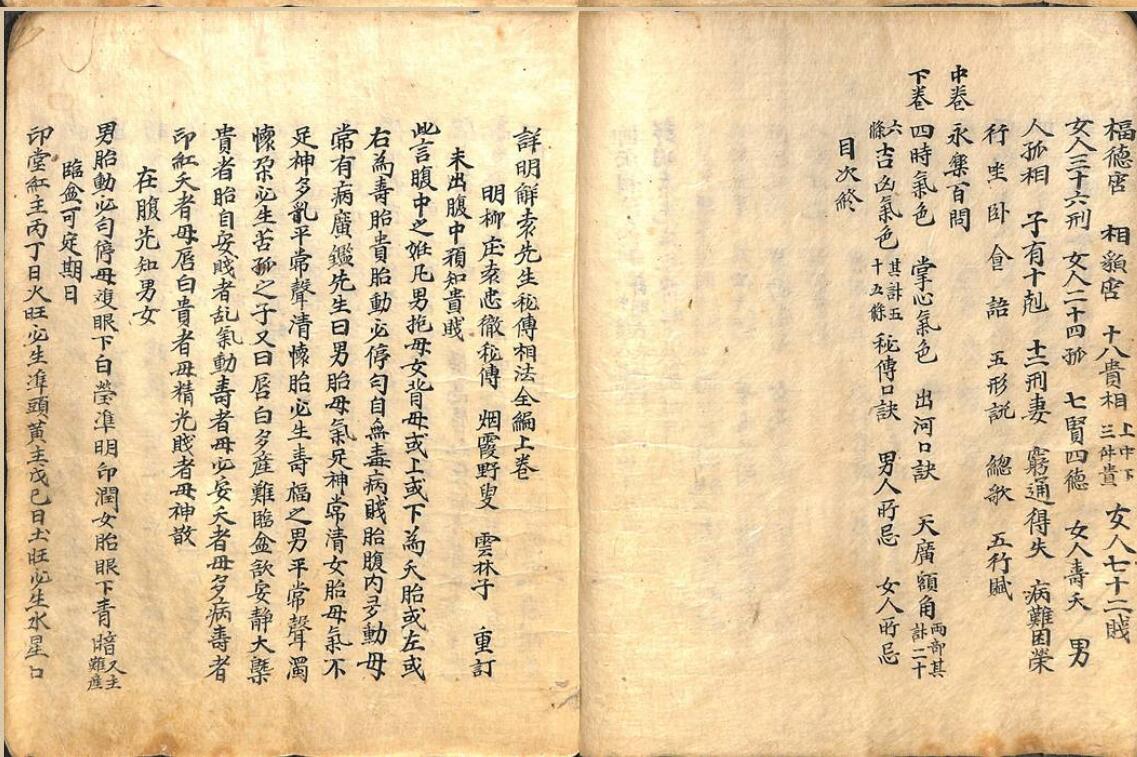 福德宮 相貌宮 十八貴相 上中下三件貴 女人七十二賤
女人三十六刑 女人二十四孤 七賢四德 女人壽夭 男
人孤相 子有十剋 十二刑妻 窮通得失 病難困榮
行坐卧食語 五形説 總歌 五行賦
中卷 永樂百問
下卷 四時氣色 掌心氣色 出河口訣 天廣額角 兩部其計二十
六條 吉凶氣色 其計五十五條 秘傳口訣 男人所忌 女人所忌
目次終
詳明解袁先生秘傳相法全編上卷
明柳庄袁忠徹秘傳 烟霞野叟 雲林子 重訂
未出腹中預知貴賤
此言腹中之姙凡男抱母女背母或上或下為夭胎或左或
右為壽胎貴胎動必停勻自無毒病賤胎腹內多動母
常有病廣鑑先生曰男胎母氣足神常清女胎母氣不
足神多亂平常聲清懷胎必生壽福之男平常聲濁
懷孕必生苦孤之子又曰唇白多産難臨盆欲安靜大槩
貴者胎自安賤者乱氣動壽者母必安夭者母多病壽者
印紅夭者母唇白貴者母精光賤者母神散
在腹先知男女
男胎動必勻停母複眼下白瑩準明印潤女胎眼下青暗又主難産
臨盆可定期日
印堂紅主丙丁日火旺必生準頭黃主戊己日土旺必生水星口